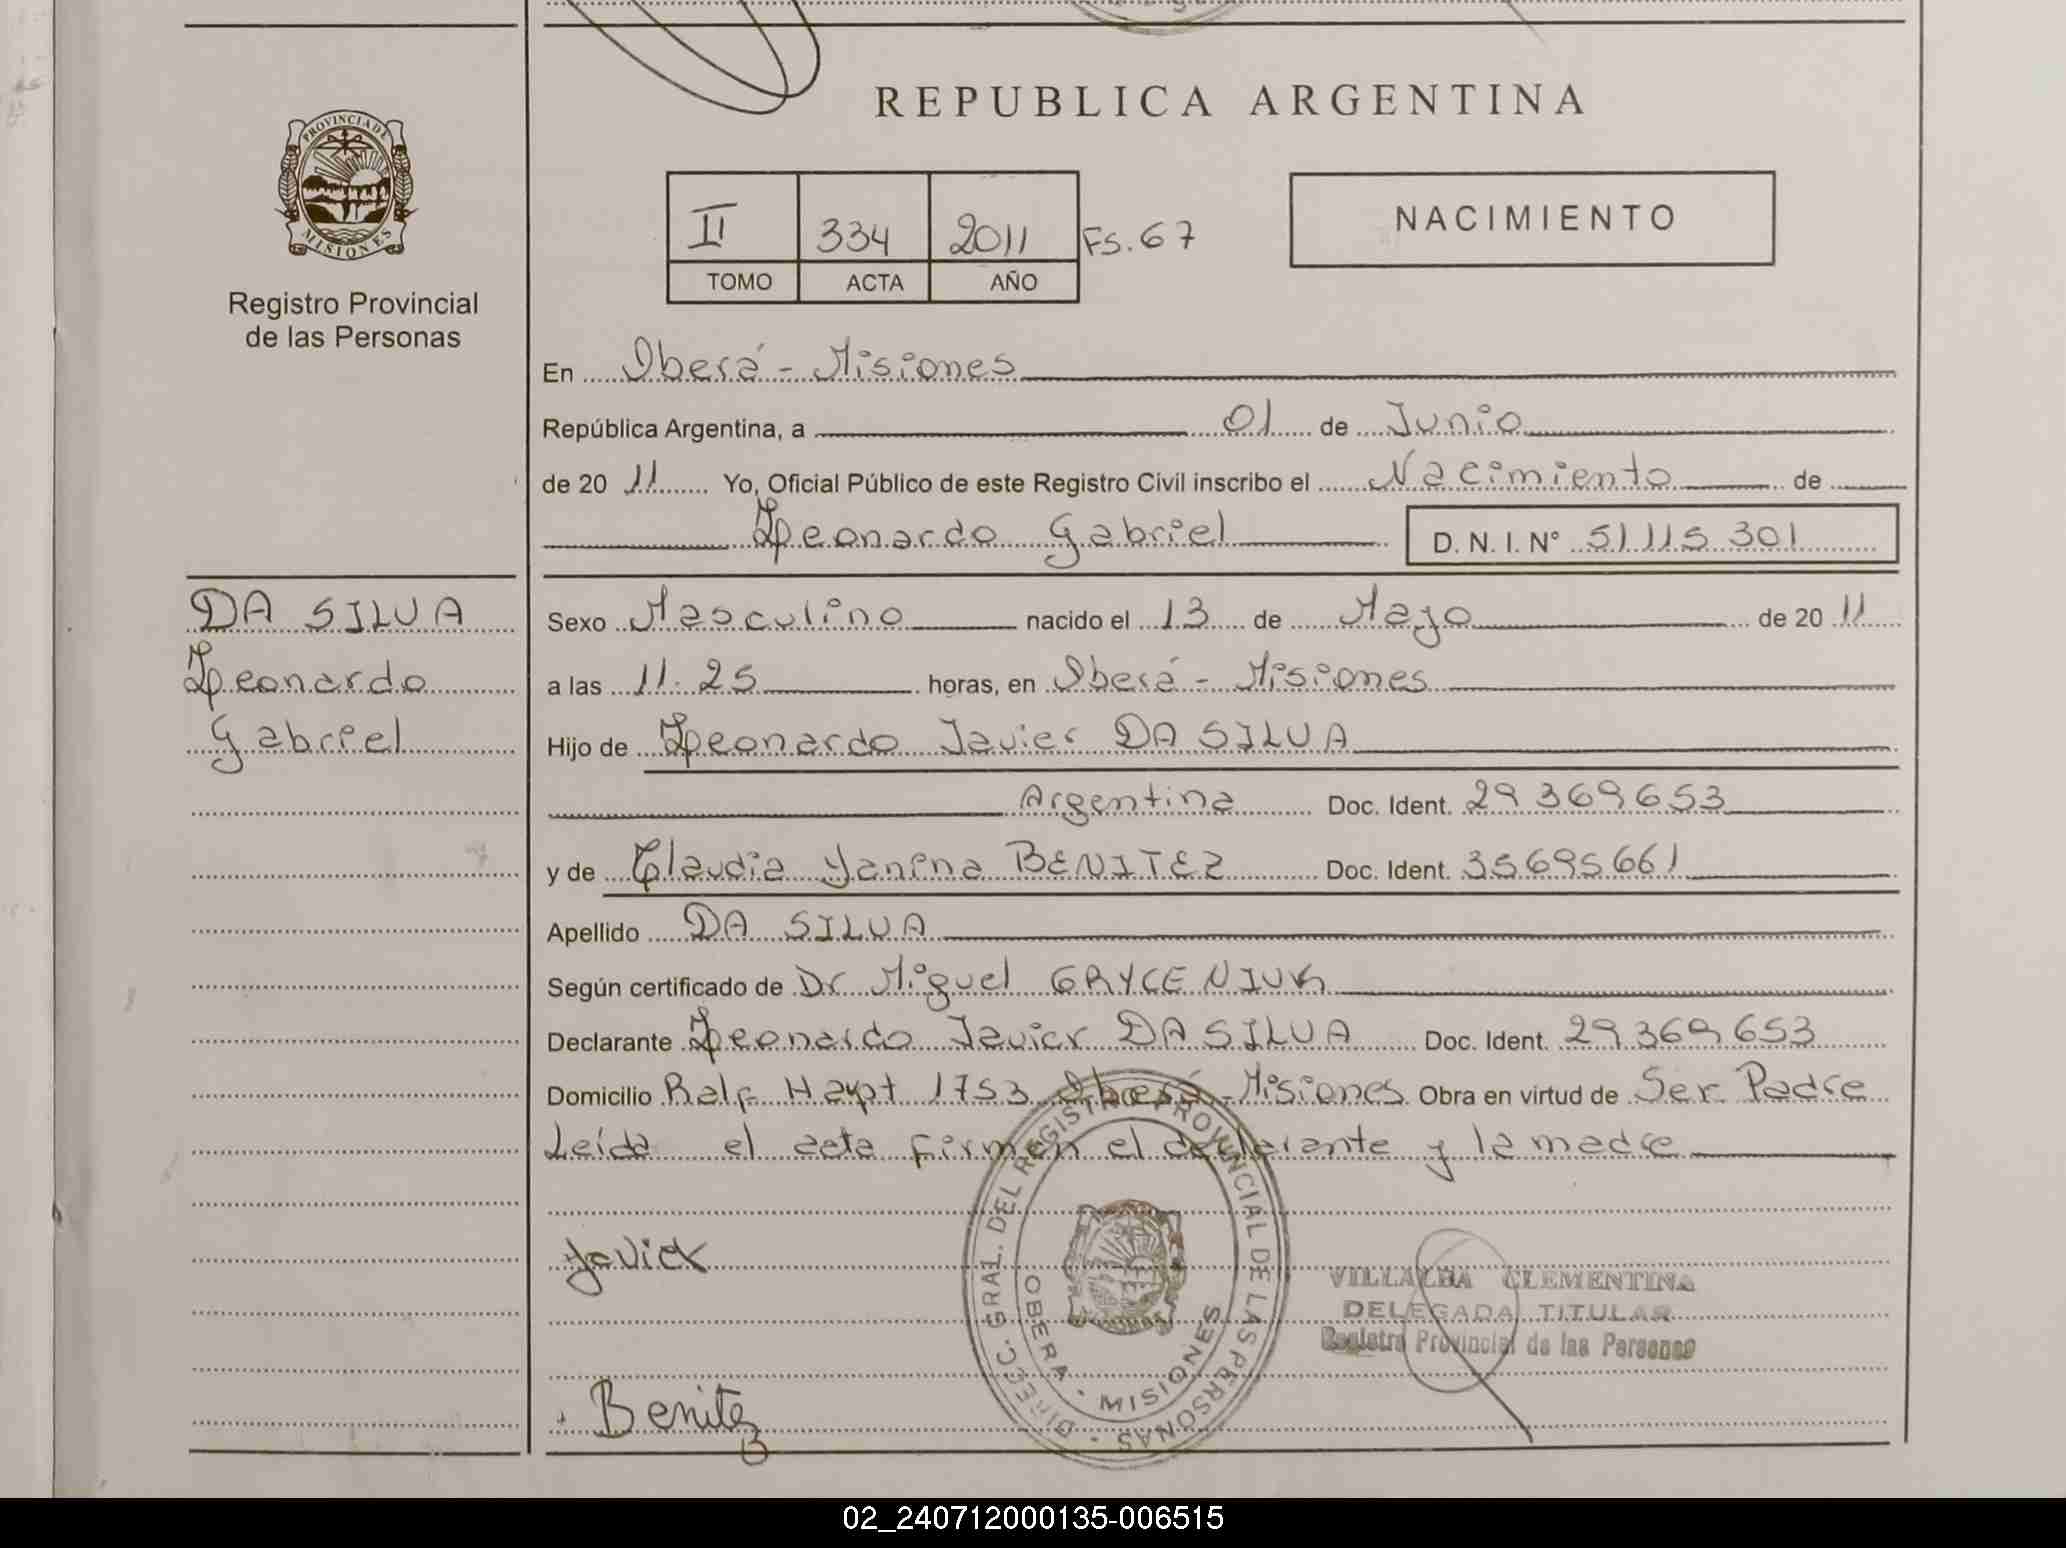 REPUBLICA ARGENTINA
PROVINCIA DE MISIONES
Registro Provincial
de las Personas
II 334 2011 FS. 67
TOMO ACTA AÑO
NACIMIENTO
En Oberá - Misiones
República Argentina, a 01 de Junio
de 20 11 Yo, Oficial Público de este Registro Civil inscribo el Nacimiento de
Leonardo Gabriel D. N. I. Nº 51 115 301
DA SILVA
Leonardo
Gabriel
Sexo Masculino nacido el 13 de Mayo de 20 11
a las 11.25 horas, en Oberá - Misiones
Hijo de Leonardo Javier DA SILVA
Argentina Doc. Ident. 29 369 653
y de Claudia Yanina BENITEZ Doc. Ident. 35695661
Apellido DA SILVA
Según certificado de Dr Miguel GRYCENIUK
Declarante Leonardo Javier DA SILVA Doc. Ident. 29 369 653
Domicilio Ralf Haypt 1753 Oberá - Misiones Obra en virtud de Ser Padre
Leída el acta firman el declarante y la madre
Javier
DIRECC. GRAL. DEL REGISTRO PROVINCIAL DE LAS PERSONAS
OBERA - MISIONES
VILLALBA CLEMENTINA
DELEGADA TITULAR
Registro Provincial de las Personas
Benitez
02_240712000135-006515